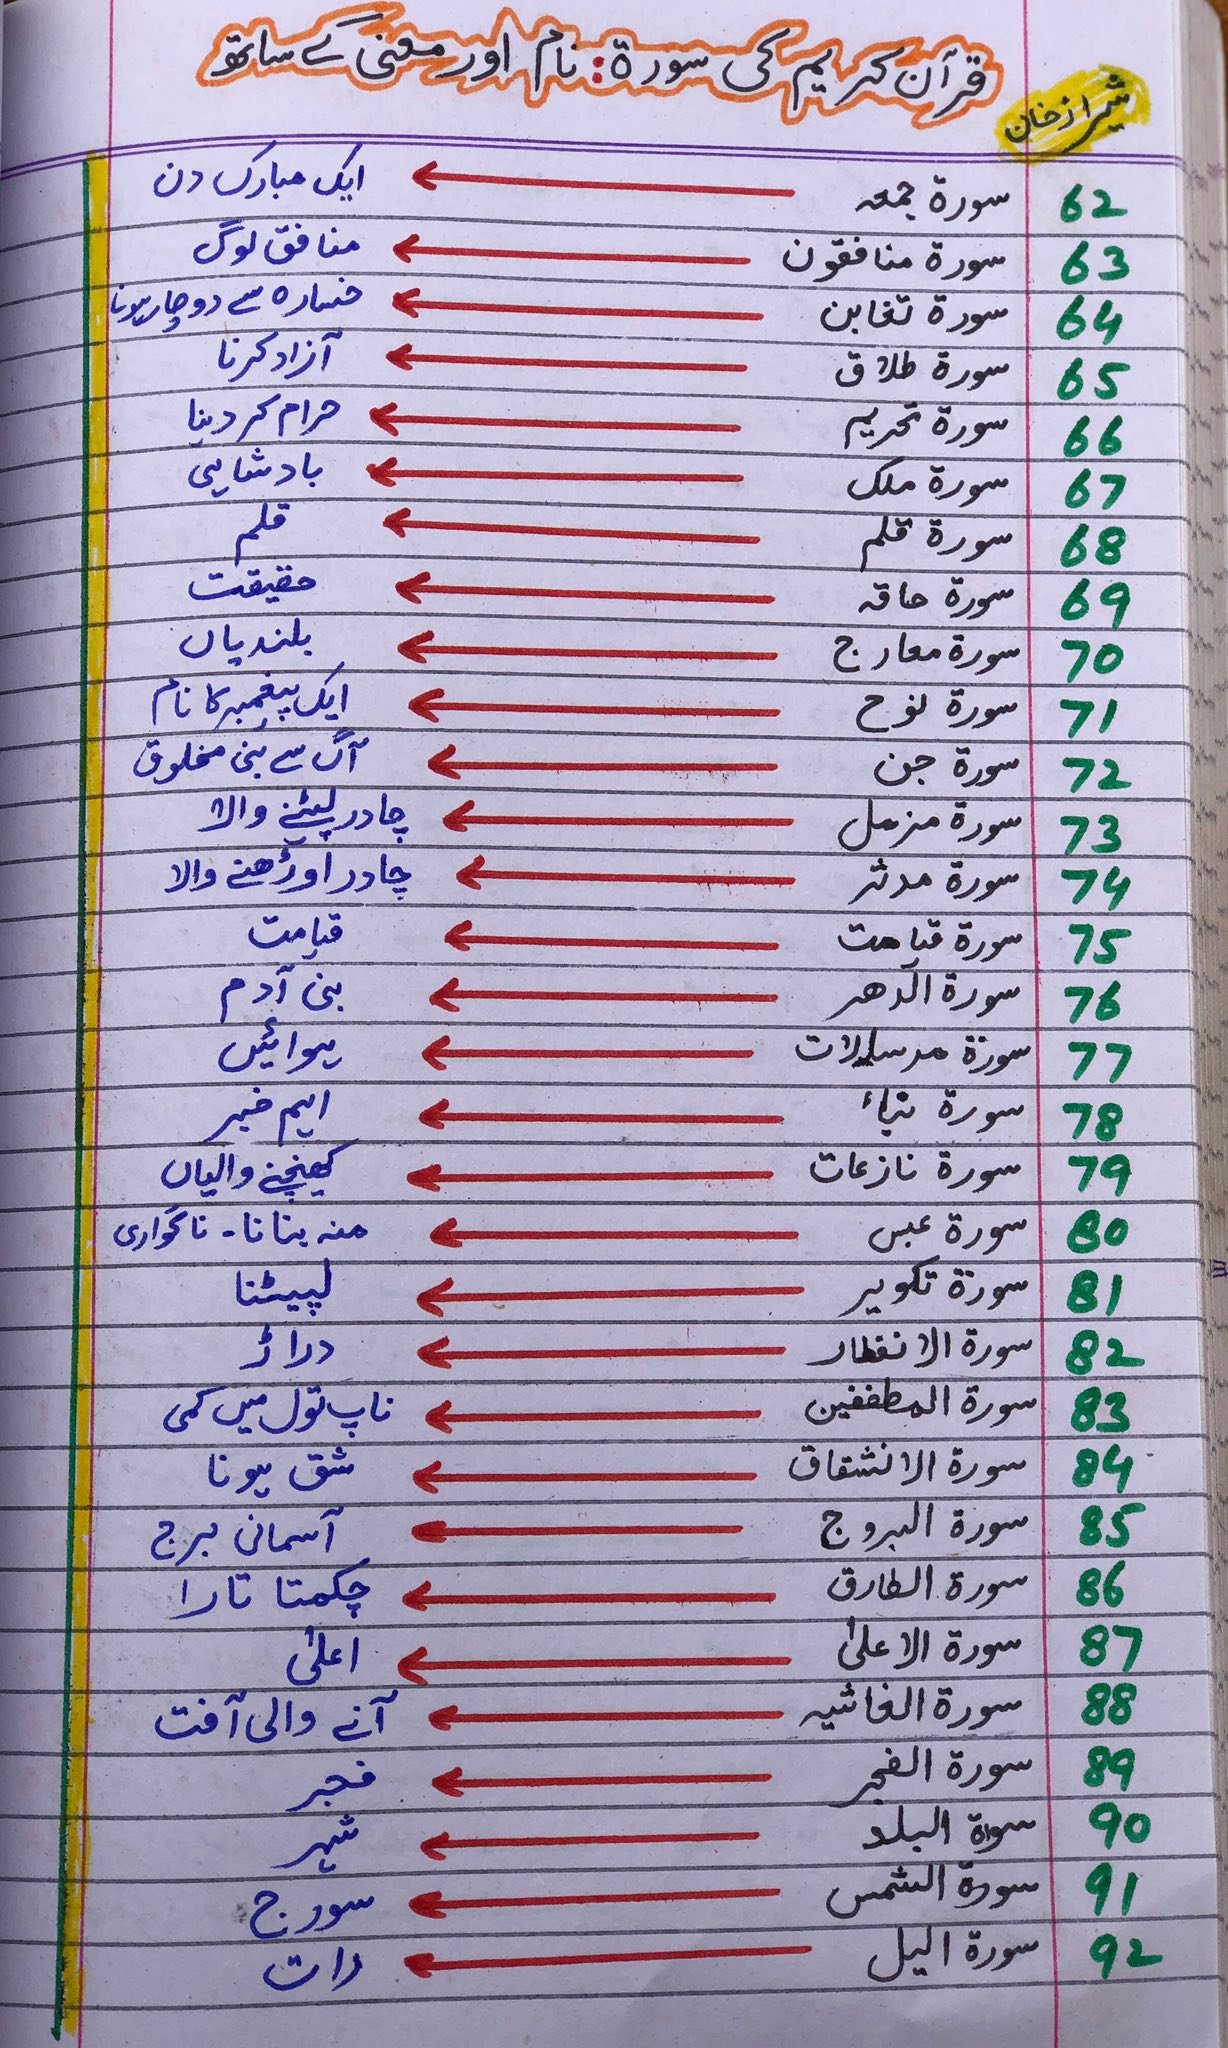 قرآن کریم کی سورۃ: نام اور معنی کے ساتھ
شیراز خان
62 سورۃ جمعہ ← ایک مبارک دن
63 سورۃ منافقون ← منافق لوگ
64 سورۃ تغابن ← خسارہ سے دوچار ہونا
65 سورۃ طلاق ← آزاد کرنا
66 سورۃ تحریم ← حرام کر دینا
67 سورۃ ملک ← بادشاہی
68 سورۃ قلم ← قلم
69 سورۃ حاقہ ← حقیقت
70 سورۃ معارج ← بلندیاں
71 سورۃ نوح ← ایک پیغمبر کا نام
72 سورۃ جن ← آگ سے بنی مخلوق
73 سورۃ مزمل ← چادر لپٹنے والا
74 سورۃ مدثر ← چادر اوڑھنے والا
75 سورۃ قیامت ← قیامت
76 سورۃ الدھر ← بنی آدم
77 سورۃ مرسلات ← ہوائیں
78 سورۃ نباء ← اہم خبر
79 سورۃ نازعات ← کھینچنے والیاں
80 سورۃ عبس ← منہ بنانا - ناگواری
81 سورۃ تکویر ← لپیٹنا
82 سورۃ الانفطار ← دراڑ
83 سورۃ المطففین ← ناپ تول میں کمی
84 سورۃ الانشقاق ← شق ہونا
85 سورۃ البروج ← آسمانی برج
86 سورۃ الطارق ← چکمتا تارا
87 سورۃ الاعلیٰ ← اعلیٰ
88 سورۃ الغاشیہ ← آنے والی آفت
89 سورۃ الفجر ← فجر
90 سورۃ البلد ← شہر
91 سورۃ الشمس ← سورج
92 سورۃ الیل ← رات